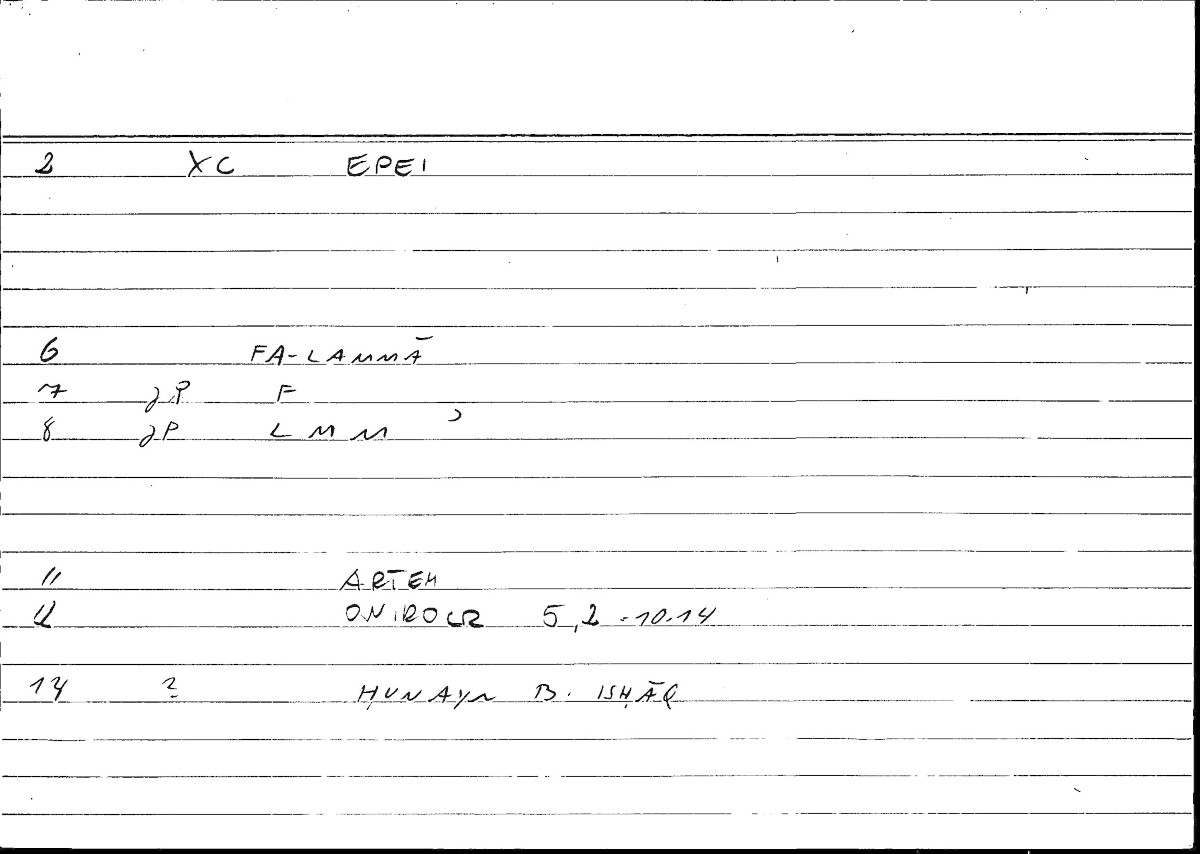 2 XC EPEI
6 FA-LAMMĀ
7 JP F
8 JP LMM ʾ
11 ARTEM
12 ONIROCR 5,2-10.14
14 ? ḤUNAYN B. ISḤĀQ